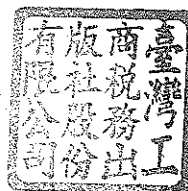 臺灣工
商稅務出
版社股份
有限公司